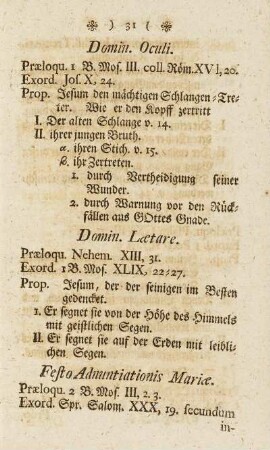 ❉ ) 31 ( ❉
Domin. Oculi.
Præloqu. 1 B. Moſ. III. coll. Röm. XVI, 20.
Exord. Joſ. X, 24.
Prop. Jeſum den mächtigen Schlangen-Tre-
ter. Wie er den Kopff zertritt
I. Der alten Schlange v. 14.
II. ihrer jungen Bruth.
α. ihren Stich. v. 15.
β. ihr Zertreten.
1. durch Vertheidigung ſeiner
Wunder.
2. durch Warnung vor den Rück-
fällen aus GOttes Gnade.
Domin. Lætare.
Præloqu. Nehem. XIII, 31.
Exord. 1 B. Moſ. XLIX, 22-27.
Prop. Jeſum, der der ſeinigen im Beſten
gedencket.
I. Er ſegnet ſie von der Höhe des Himmels
mit geiſtlichen Segen.
II. Er ſegnet ſie auf der Erden mit leibli-
chen Segen.
Feſto Adnuntiationis Mariæ.
Præloqu. 2 B. Moſ. III, 2. 3.
Exord. Spr. Salom. XXX, 19. ſecundum
in-